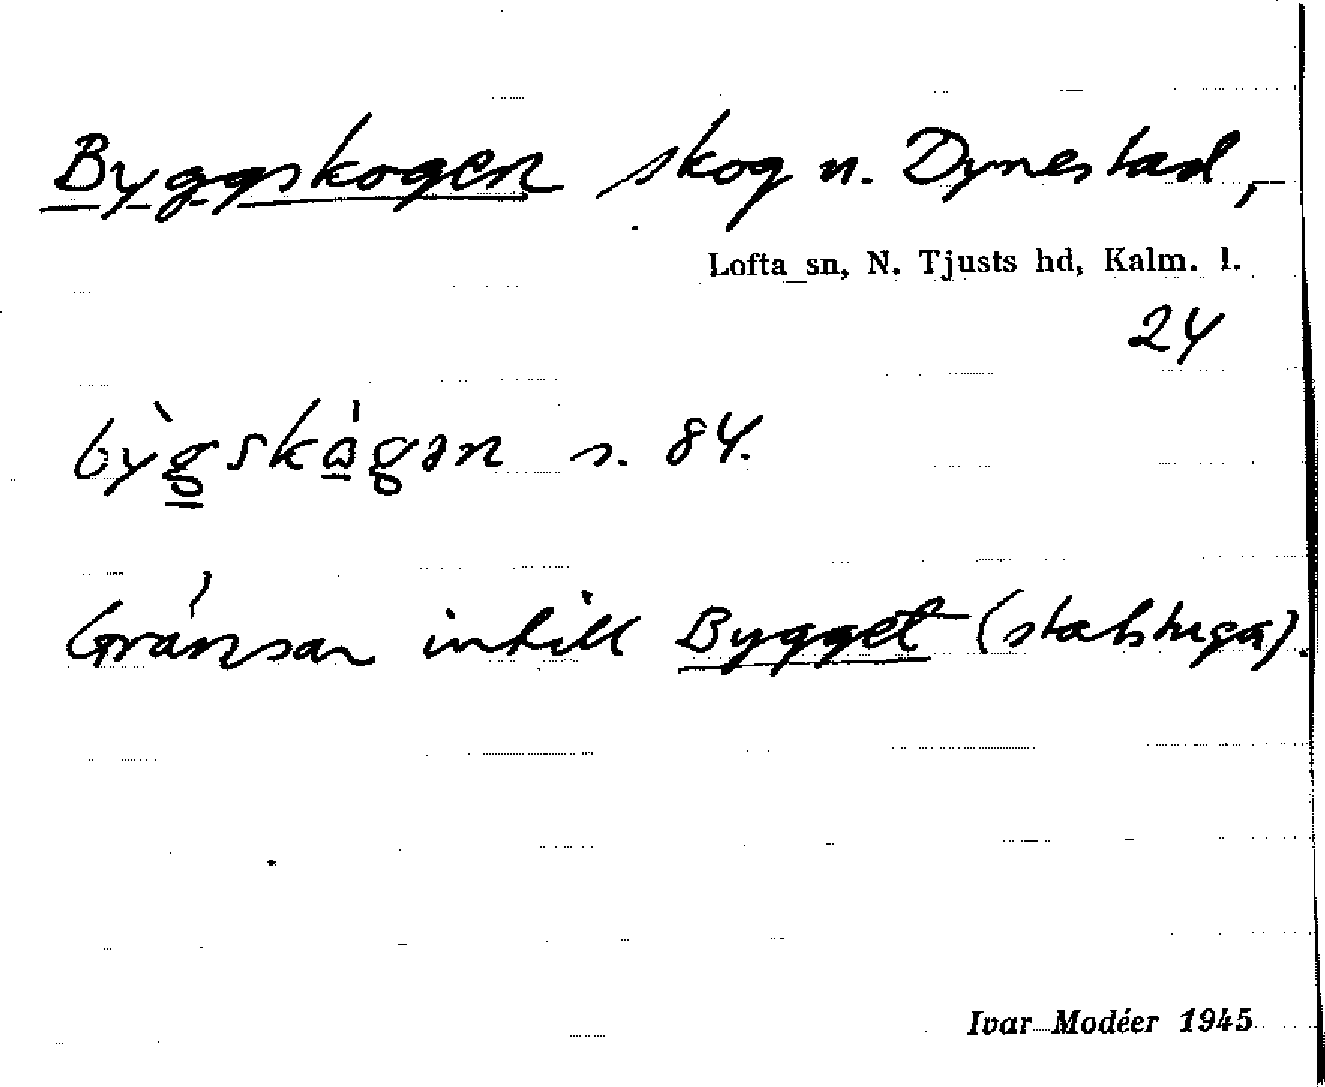 Byggskogen skog u. Dynestad,
Lofta sn, N. Tjusts hd, Kalm. l.
24
by̍̀gskågən s. 84.
Gränsar intill Bygget (statstuga).
Ivar Modéer 1945